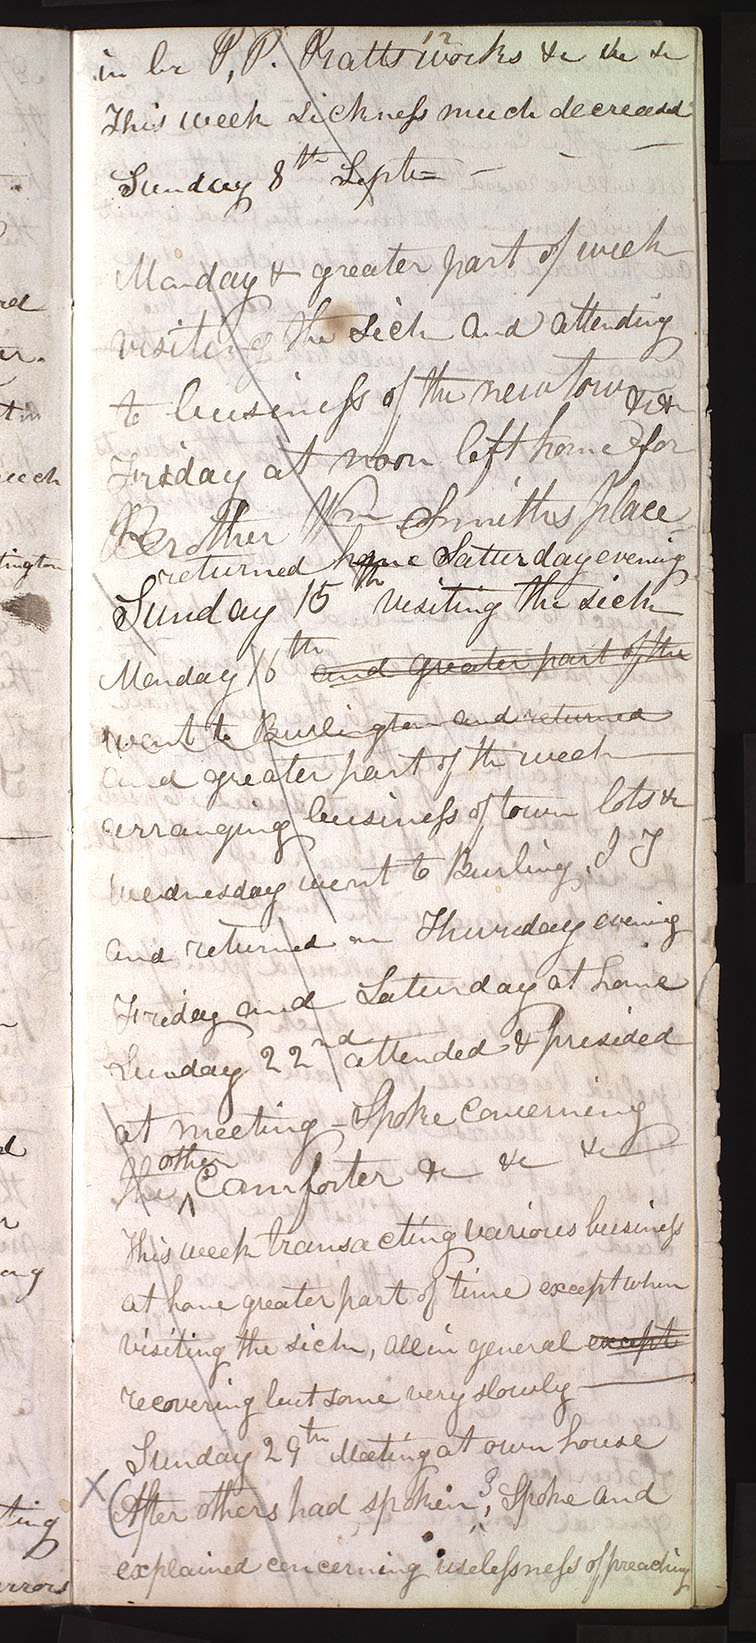 in br P, P. Pratts works &c &c &c
This week sickness much decreased
Sunday 8th Septr
Monday & greater part of week
visiting the sick and attending
to business of the new town &c &c
Friday at noon left home for
Brother Wm Smiths place
returned home Saturday evening
Sunday 15th visiting the sick
Monday 16th and greater part of the
went to Burlington and returned
and greater part of the week
arranging business of town lots &c
wednesday went to Burling, I T
and returned on Thursday evening
Friday and Saturday at home
Sunday 22nd attended & presided
at meeting - Spoke concerning
other
the ^ Comforter &c &c &c
This week transacting various business
at home greater part of time except when
visiting the sick, all in general except
recovering but some very slowly
Sunday 29th Meeting at own house
X (After others had spoken, Spoke and
explained concerning uselessness of preaching